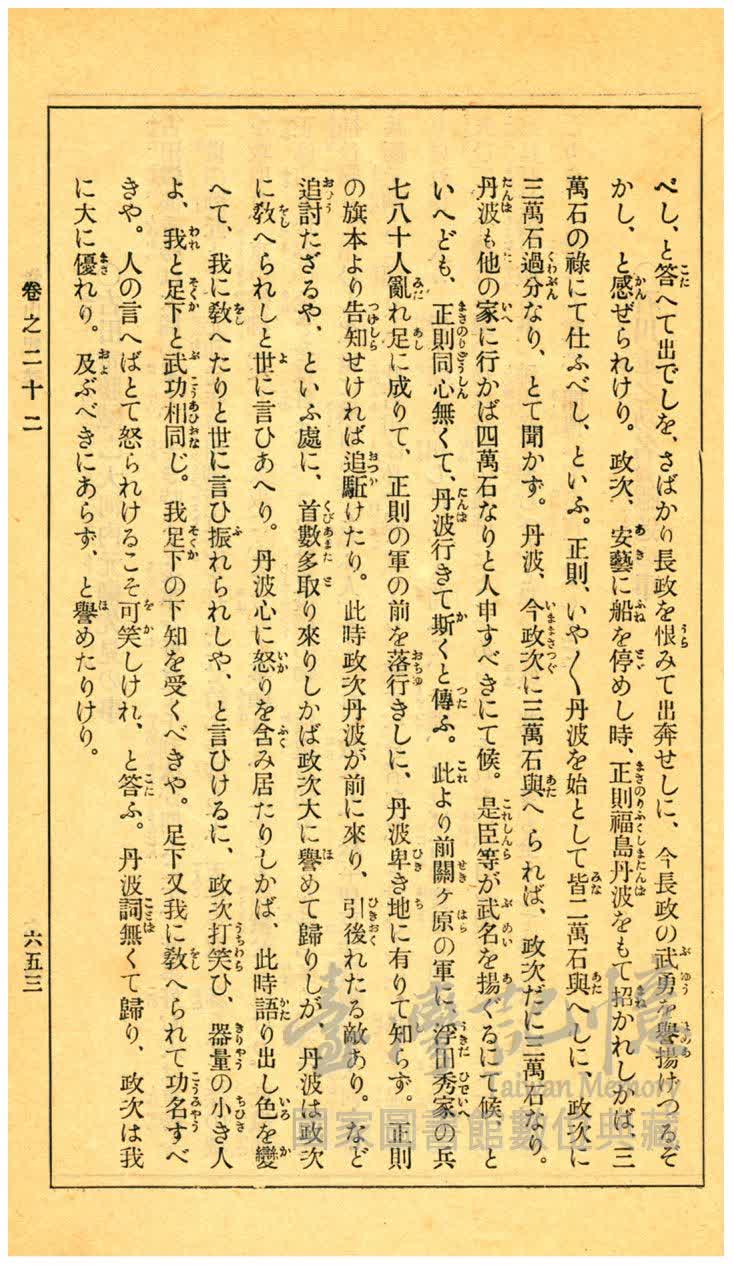 べし、と答へて出でしを、さばかり長政を恨みて出奔せしに、今長政の武勇を譽揚げつるぞ
かし、と感ぜられけり。政次、安藝に船を停めし時、正則福島丹波をもて招かれしかば、三
萬石の祿にて仕ふべし、といふ。正則、いや〳〵丹波を始として皆二萬石與へしに、政次に
三萬石過分なり、とて聞かず。丹波、今政次に三萬石與へられば、政次だに三萬石なり。
丹波も他の家に行かば四萬石なりと人申すべきにて候。是臣等が武名を揚ぐるにて候と
いへども、正則同心無くて、丹波行きて斯くと傳ふ。此より前關ヶ原の軍に、浮田秀家の兵
七八十人亂れ足に成りて、正則の軍の前を落行きしに、丹波卑き地に有りて知らず。正則
の旗本より告知せければ追駈けたり。此時政次丹波が前に來り、引後れたる敵あり。など
追討たざるや、といふ處に、首數多取り來りしかば政次大に譽めて歸りしが、丹波は政次
に敎へられしと世に言ひあへり。丹波心に怒りを含み居たりしかば、此時語り出し色を變
へて、我に敎へたりと世に言ひ振れられしや、と言ひけるに、政次打笑ひ、器量の小き人
よ、我と足下と武功相同じ。我足下の下知を受くべきや。足下又我に敎へられて功名すべ
きや。人の言へばとて怒られけるこそ可笑しけれ、と答ふ。丹波詞無くて歸り、政次は我
に大に優れり。及ぶべきにあらず、と譽めたりけり。
卷之二十二
六五三
臺灣記憶
Taiwan Memory
國家圖書館數位典藏